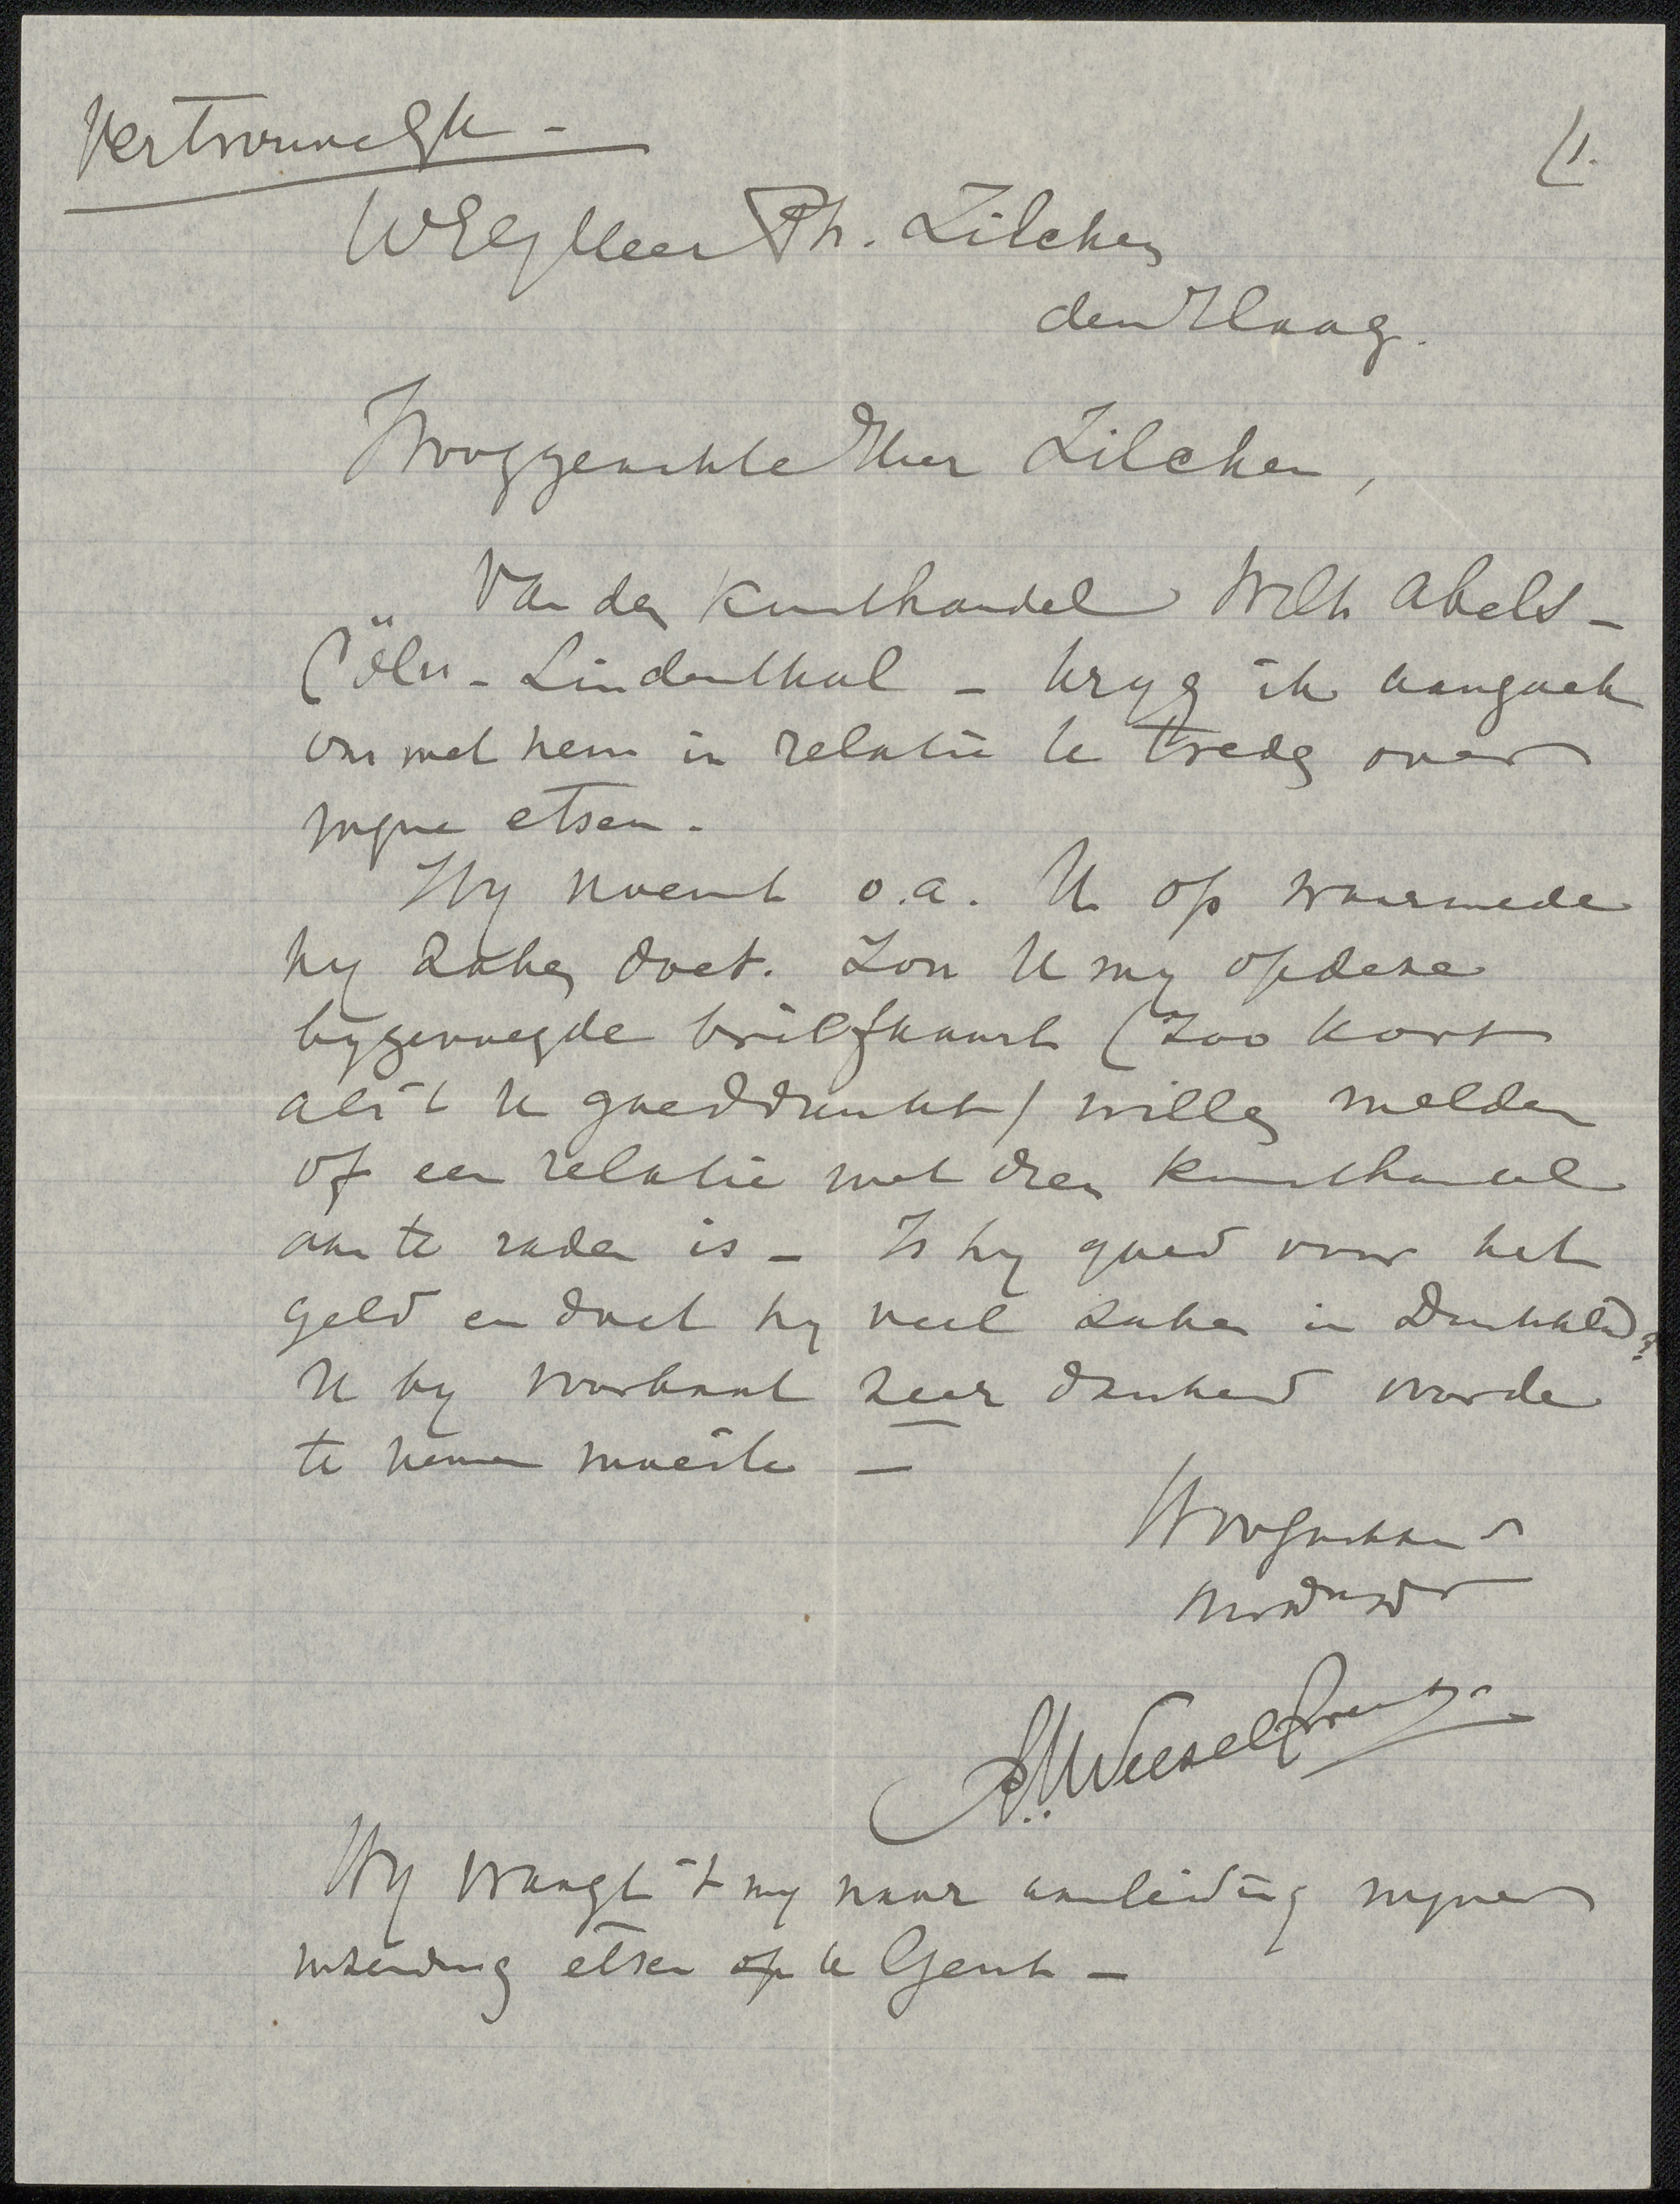 Vertrouwelyk -
1.
WElg Heer Ph. Zilcken
den Haag.
Hooggeachte Heer Zilcken,
Van den Kunsthandel Wilh Abels -
Cöln - Lindenthal - kryg ik aanzoek
om met hem in relatie te treden over
myne etsen.
Hy noemt o.a. U op waarmede
hy zaken doet. Zou U my op deze
bygevoegde briefkaart (zoo kort
als 't U goeddunkt) willen melden
of een relatie met dien kunsthandel
aan te raden is - Is hy goed voor het
geld en doet hy veel zaken in Duitschld?
U by voorbaat zeer dankend voor de
te nemen moeite -
Hoogachtend
Uw dw dr
Wy vraagt 't my naar aanleiding myner
inzending etsen op te Gent -